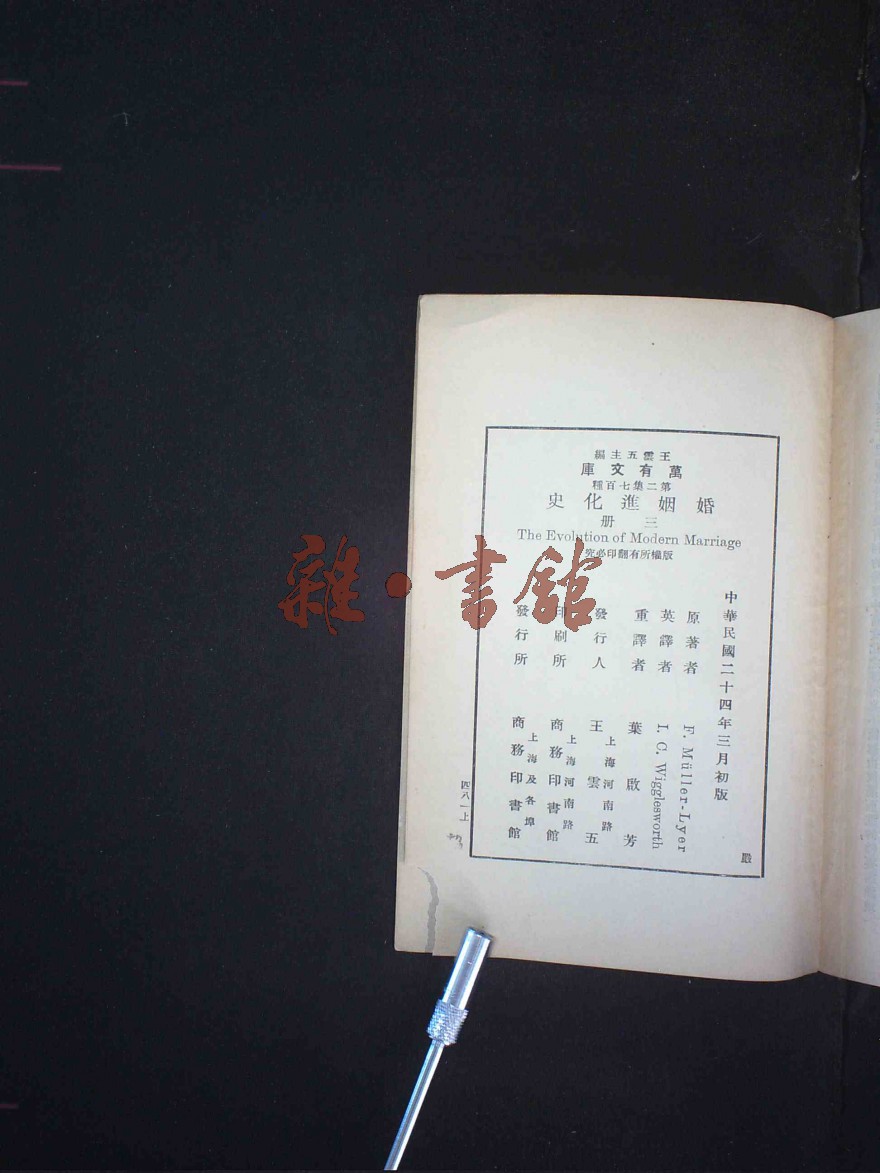 王雲五主編
萬有文庫
第二集七百種
婚姻進化史
三册
The Evolution of Modern Marriage
版權所有翻印必究
中華民國二十四年三月初版
原著者 F. Müller-Lyer
英譯者 I. C. Wigglesworth
重譯者 葉啟芳
發行人 王雲五
上海河南路
印刷所 商務印書館
上海河南路
發行所 商務印書館
上海及各埠
四八一上
嚴
雜·書館